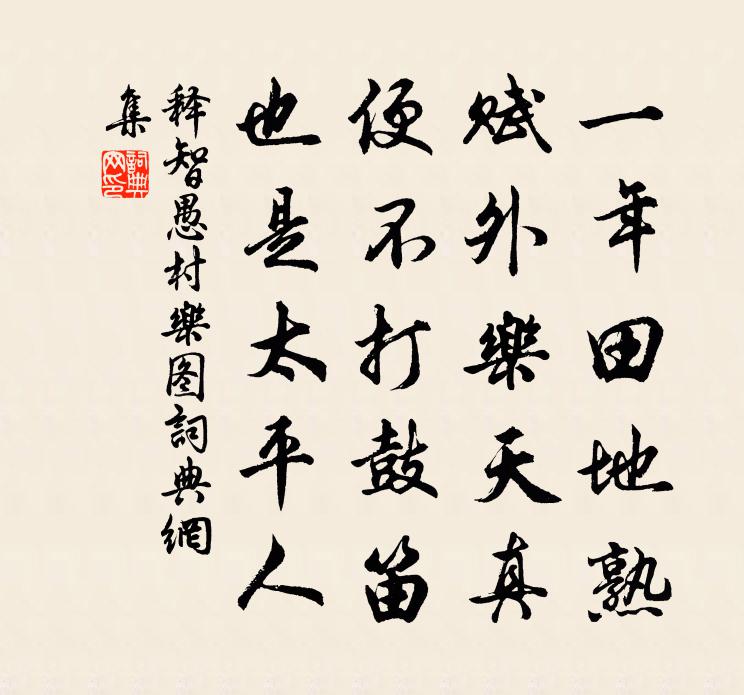 一年田地熟
赋外樂天真
便不打鼓笛
也是太平人
释智愚村樂图詞典網
集
詞典
网印